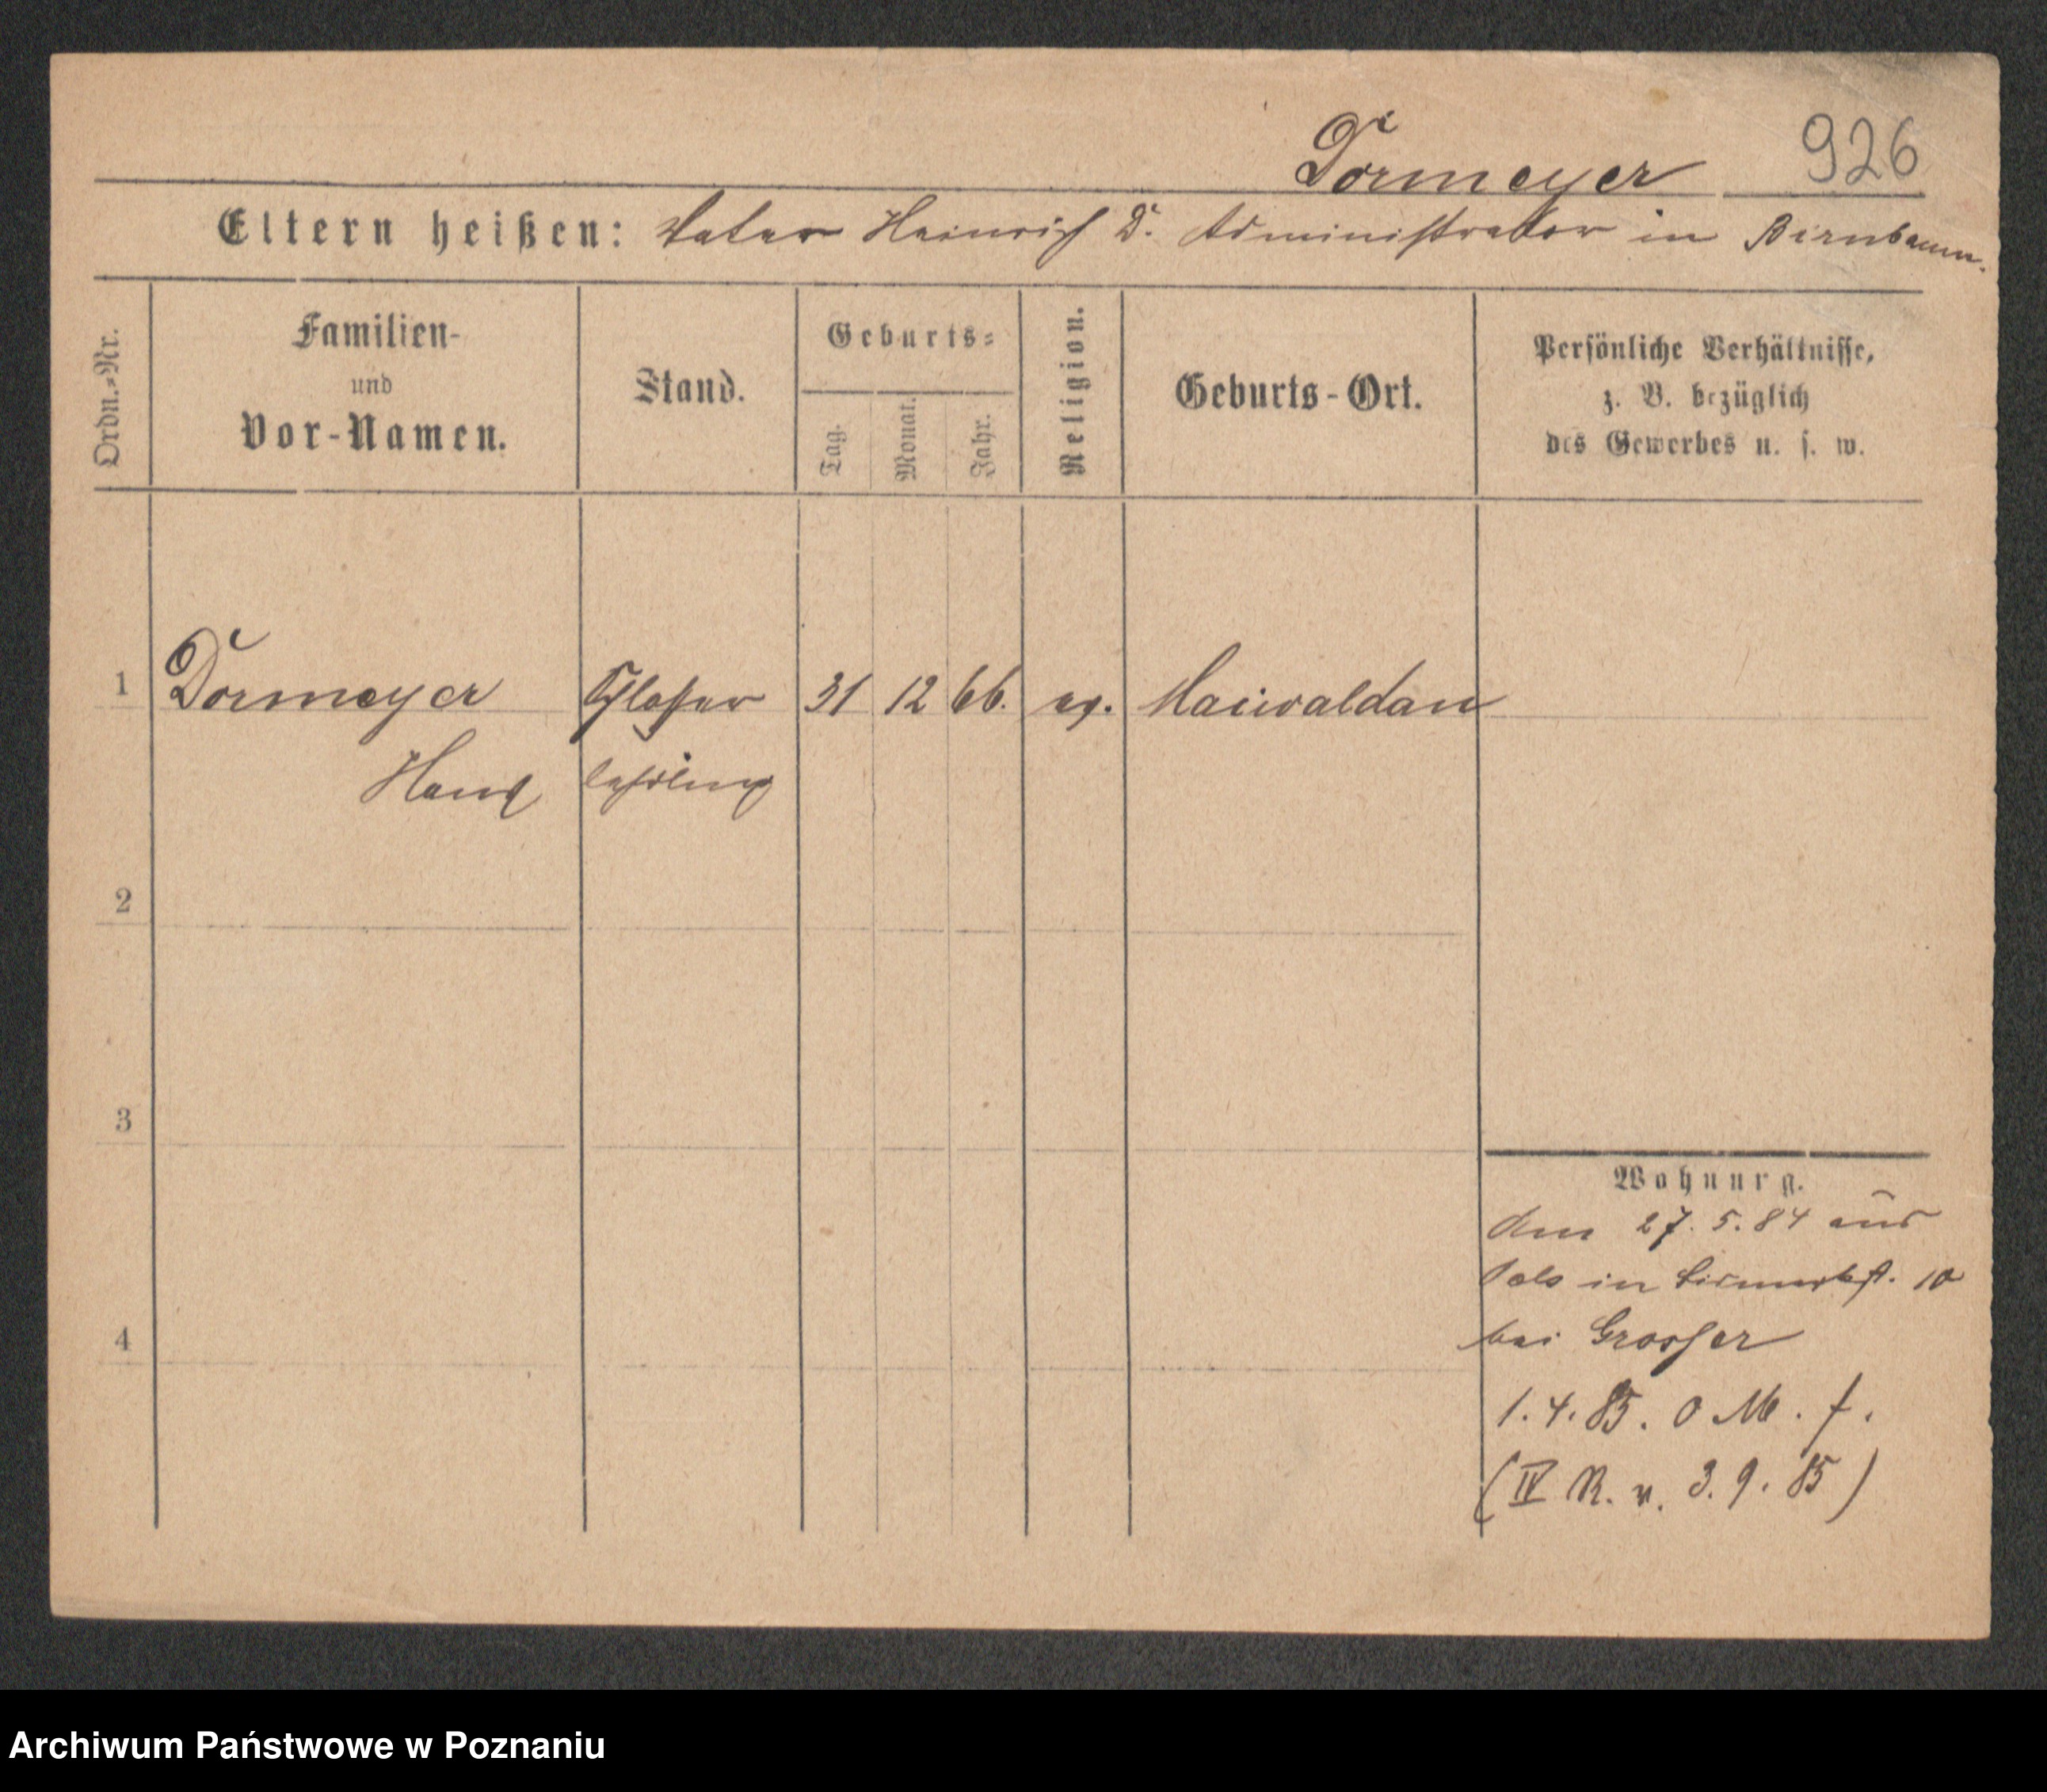 Dormeyer 926
Eltern heißen: Vater Heinrich D. Administrator in Birnbaum.
Ordn.-Nr.
Familien-
und
Vor-Namen.
Stand.
Geburts-
Tag.
Monat.
Jahr.
Religion.
Geburts-Ort.
Persönliche Verhältnisse,
z. B. bezüglich
des Gewerbes u. s. w.
1 Dormeyer Schlosser 31 12 66. ev. Maiwaldau
Hans lehrling
2
3
4
Wohnung.
Am 27. 5. 84 aus
in Bismarkst. 10
bei Grosser
1. 4. 85. O M. f.
(IV R. v. 3. 9. 85)
Archiwum Państwowe w Poznaniu